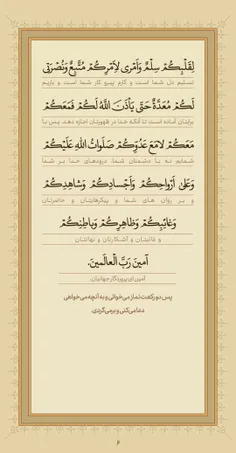 لِقَلْبِكُمْ سِلْمٌ وَأَمْرى لِأَمْرِكُمْ مُتَّبِعٌ وَنُصْرَتى
تسلیم دل شما است و کارم پیرو کار شما است و یاریم
لَكُمْ مُعَدَّةٌ حَتّى يَأْذَنَ اللهُ لَكُمْ فَمَعَكُمْ
برایتان آماده است تا آنکه خدا در ظهورتان اجازه دهد. پس با
مَعَكُمْ لامَعَ عَدُوِّكُمْ صَلَواتُ اللهِ عَلَيْكُمْ
شمایم نه با دشمنان شما، درودهای خدا بر شما
وَعَلى أَرْواحِكُمْ وَأَجْسادِكُمْ وَشاهِدِكُمْ
و بر روان های شما و پیکرهایتان و حاضرتان
وَغائِبِكُمْ وَظاهِرِكُمْ وَباطِنِكُمْ
و غائبتان و آشکارتان و نهانتان
آمينَ رَبَّ الْعالَمينَ.
آمین ای پروردگار جهانیان.
پس دو رکعت نماز می‌خوانی و به آنچه می‌خواهی
دعا می‌کنی و برمی‌گردی.